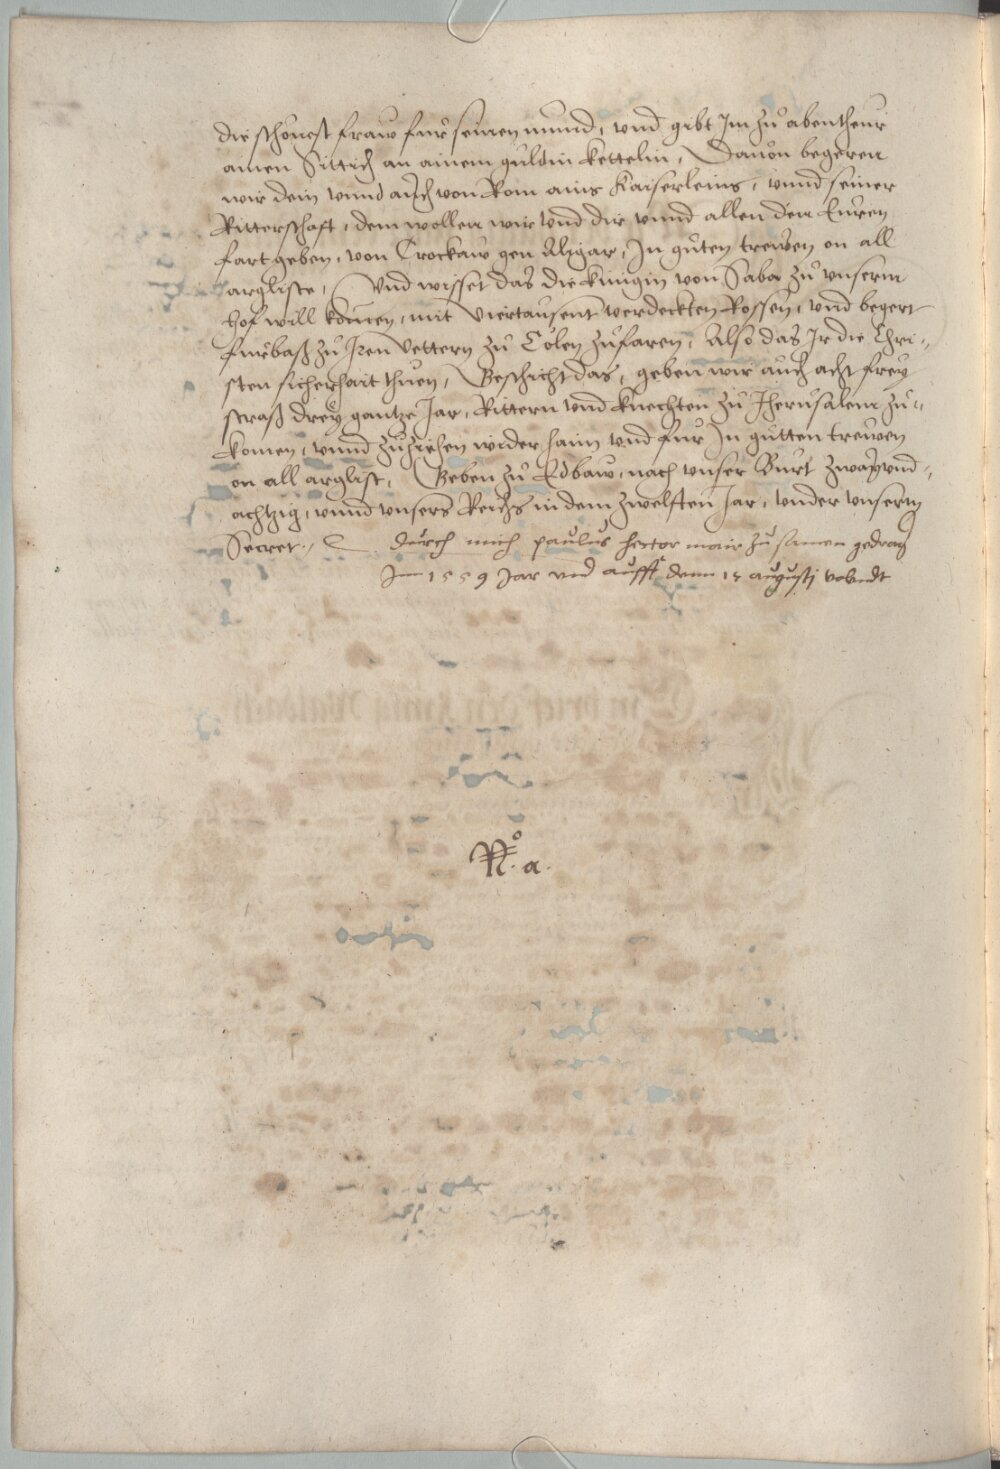 die schönest fraw fur seinen mund, vnd gibt Im zů abentheur
ainen Sittich an ainem guldin kettelin, Dauon begeren
wir dein vnnd auch von Rom ains Kaiserleins, vnnd seiner
Ritterschafft, dem wollen wir vnd dir vnnd allen den Euren
fart geben, von Crockaw gen Algar, In gůten trewen on all
argliste, Vnd wisset das die kinigin von Saba zů vnserm
hof will komen, mit viertausent verdeckten Rossen, vnd begert
furbaß zů Iren Vettern zů Cölen zůfaren, Also das Ir die Chri=
sten sicherhait thuen, Beschicht das, geben wir auch acht frey
straß drey gantze Jar, Rittern vnd knechten zů Jherusalem zů=
komen, vnnd zůziehen wider haim vnd fur In gůtten trewen
on all arglist, Geben zů Edbaw, nach vnser Burt zwayvnd=
achtzig, vnnd vnsers Reichs in dem zwelfften Jar, vnder vnserm
Secret.
durch mich paulus hector mair zů samen gedragen
Im 1559 Jar vnd aufft denn 15 augusti volendt
N.o a.